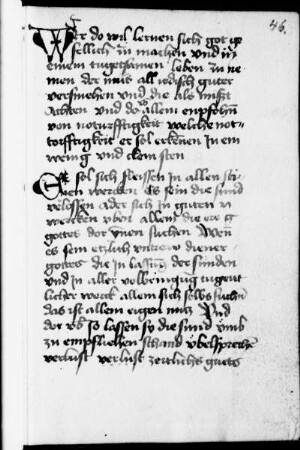 46.
Wer do wil lernen sich got ge
sellich zu machen und in
einem tugetsamen leben zu ne
men der mus all irdisch guter
versmehen und die als mist
achten und do allem enpfohn
von noturfftigkeit welche not-
torfftigkeit er sol erkenen in em
wenig und cleinsten
Er sol sich fleissen in allen sti
cken werden Es sein die sund
velossen ader sich in guten w
wercken vben allein die ere g
gottes dor ynen suchen Wen
es sein etzlich vntrew diener
gottes die in lassung der sunden
und in aller volbringug tugent
licher werck allein sich selbs suchn
das ist allein eygen nutz Und
dor vb so lassen sy die sund vmb
zu empfliehen schand vbelsprechen
verlust verlust zeitlichs guets